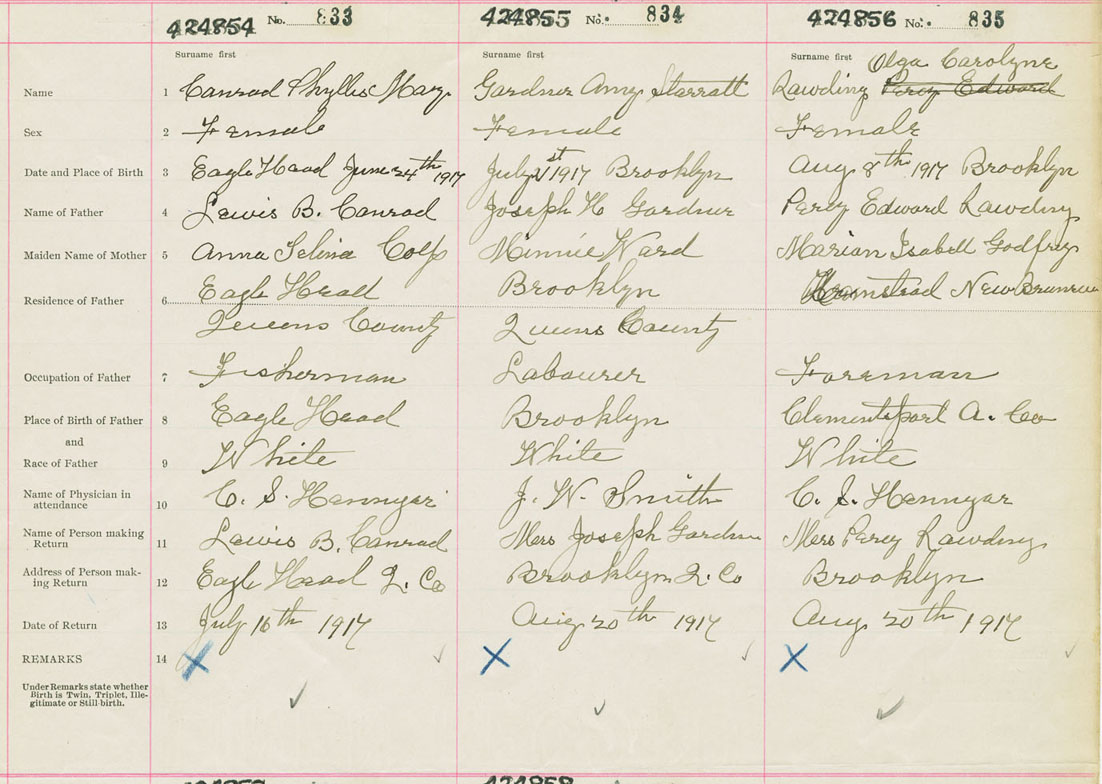 424854 No. 833 424855 No. 834 424856 No. 835
Surname first Surname first Surname first Olga Carolyne
Name 1 Conrad Phyllis Mary Gardner Amy Starratt Rawding Percy Edward
Sex 2 Female Female Female
Date and Place of Birth 3 Eagle Head June 24th 1917 July 21st 1917 Brooklyn Aug 8th 1917 Brooklyn
Name of Father 4 Lewis B. Conrad Joseph H Gardner Percy Edward Rawding
Maiden Name of Mother 5 Anna Selina Colp Minnie Ward Marian Isabell Godfrey
Residence of Father 6 Eagle Head Brooklyn New Brunswick
Queens County Queens County
Occupation of Father 7 Fisherman Labourer Foreman
Place of Birth of Father 8 Eagle Head Brooklyn Clementsport A. Co
and
Race of Father 9 White White White
Name of Physician in
attendance 10 C. S. Hennigar J. W. Smith C. S. Hennigar
Name of Person making
Return 11 Lewis B. Conrad Mrs Joseph Gardner Mrs Percy Rawding
Address of Person mak-
ing Return 12 Eagle Head Q. Co Brooklyn Q. Co Brooklyn
Date of Return 13 July 16th 1917 Aug 20th 1917 Aug 20th 1917
REMARKS 14 X X X
Under Remarks state whether
Birth is Twin, Triplet, Ille-
gitimate or Still-birth.
424858